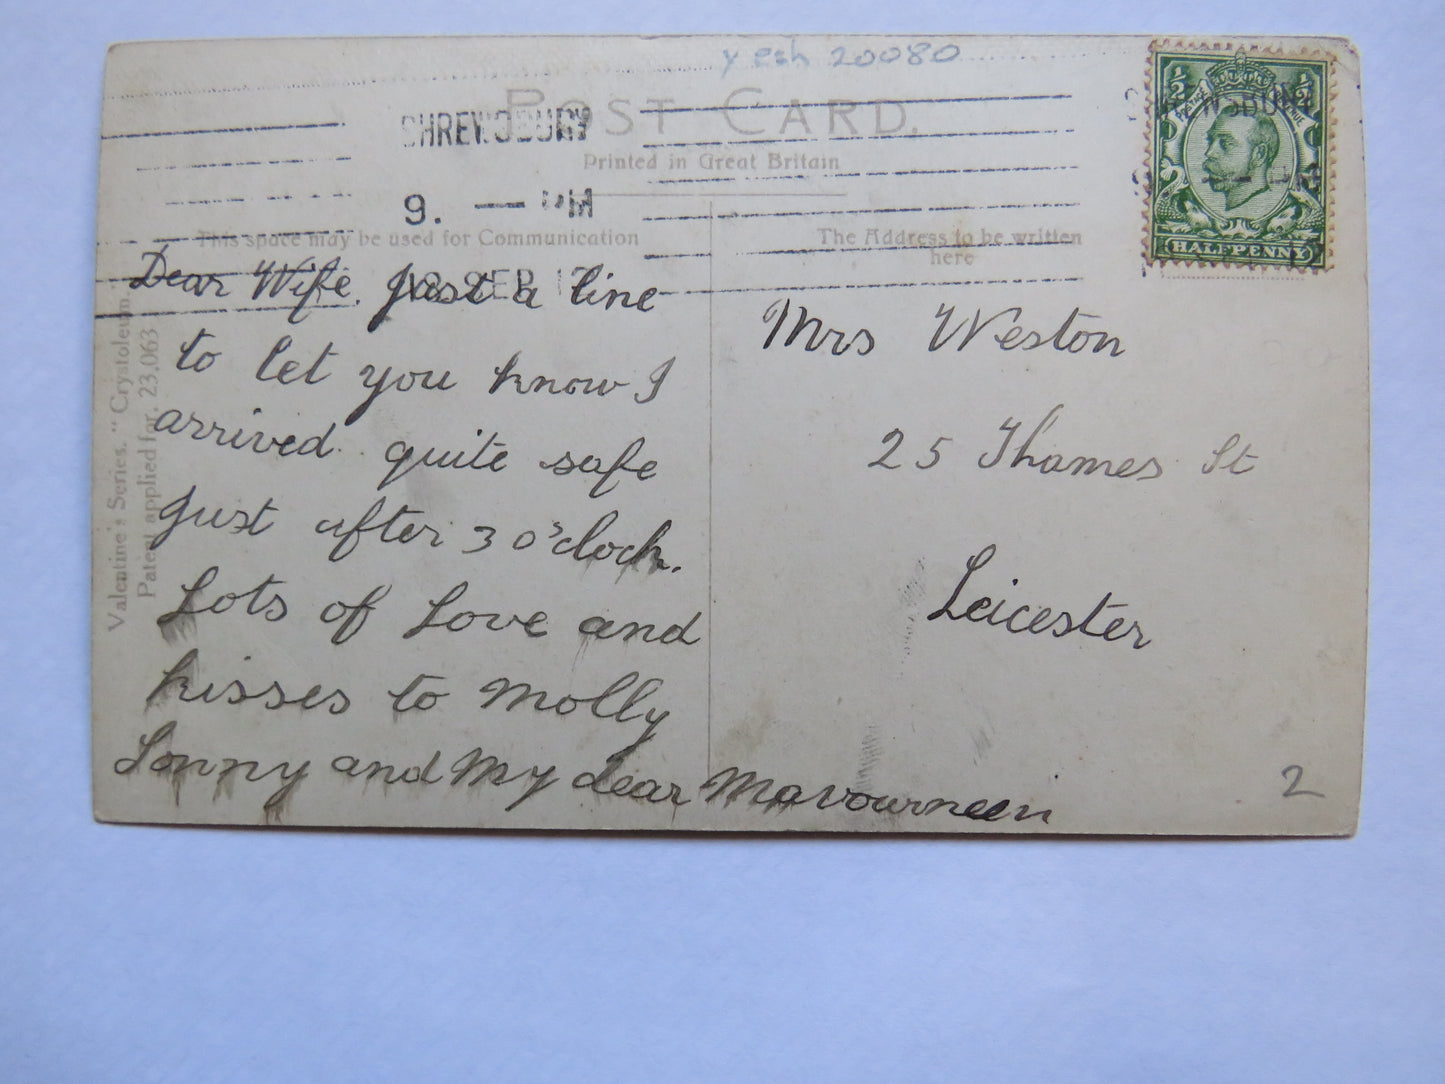 y esh 20080
POST CARD.
Printed in Great Britain
SHREWSBURY
9. — PM
18 SEP 1
½ ½
HALFPENNY
This space may be used for Communication
The Address to be written
here
Valentine's Series. "Crystoleum."
Patent applied for. 23,063
Dear Wife. Just a line
to let you know I
arrived quite safe
Just after 3 o'clock.
Lots of Love and
kisses to Molly
Lonny and My dear Mavourneen
Mrs Weston
25 Thames St
Leicester
2